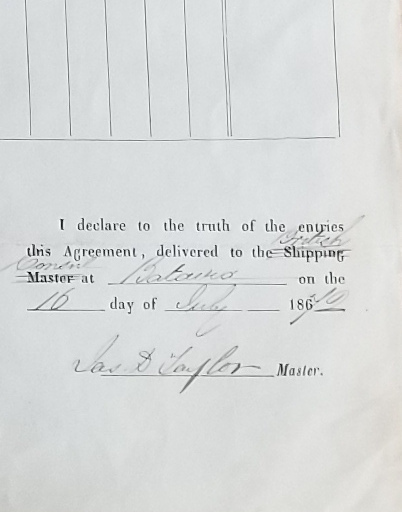 I declare to the truth of the entries
this Agreement, delivered to the Shipping British
Master Consul at Batavia on the
16 day of July 18670
Jas D Taylor Master.